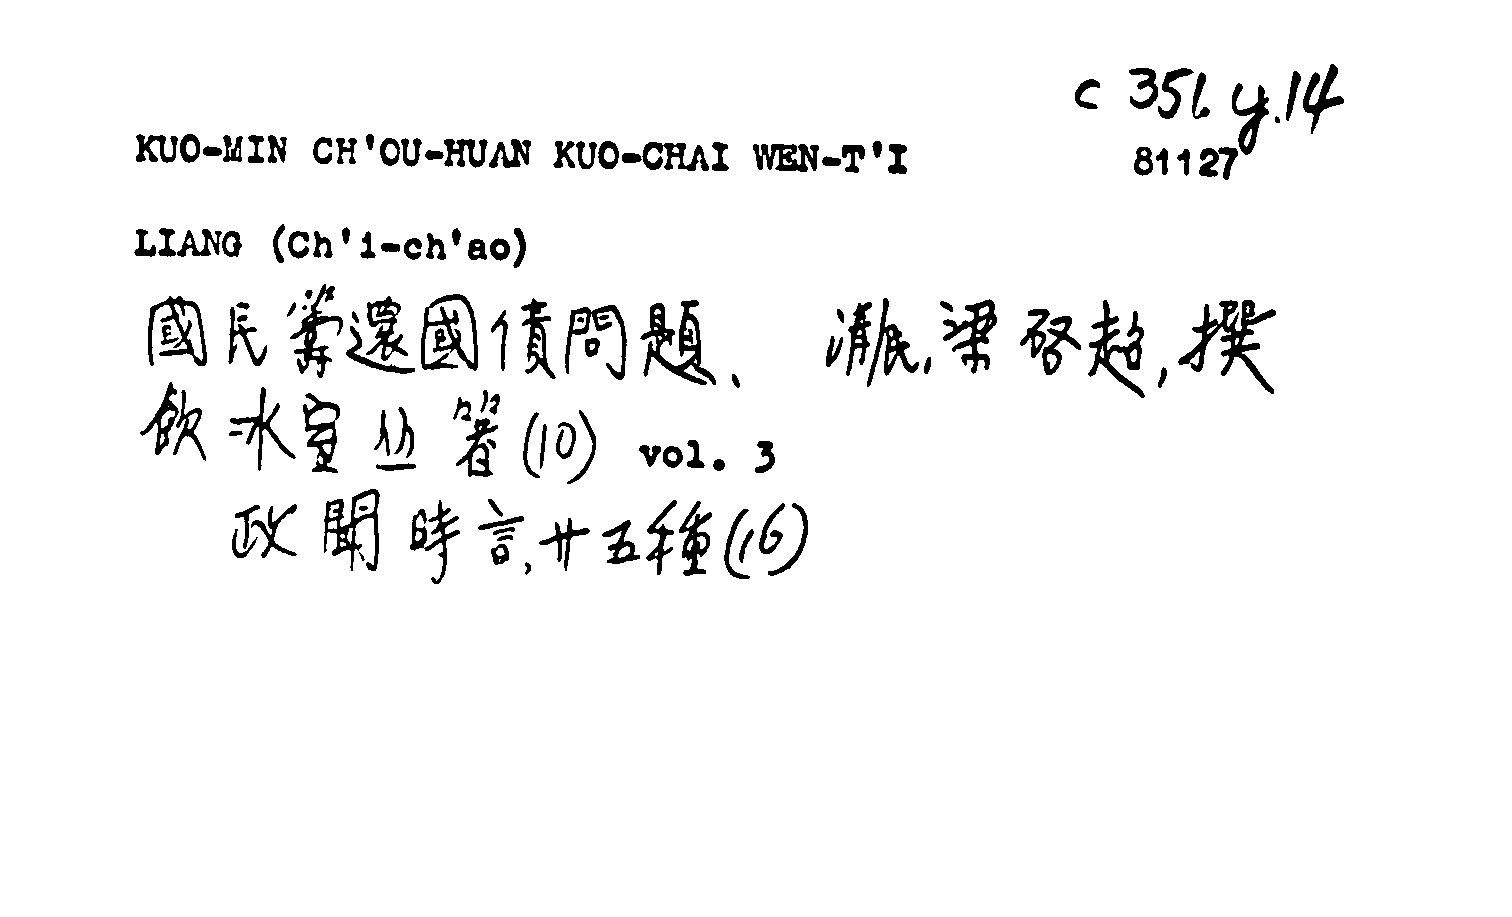 c 351. y.14
KUO-MIN CH'OU-HUAN KUO-CHAI WEN-T'I
81127
LIANG (Ch'i-ch'ao)
國民籌還國債問題、 清民,梁啓超,撰
飲冰室丛箸(10) vol. 3
政聞時言,廿五種(16)